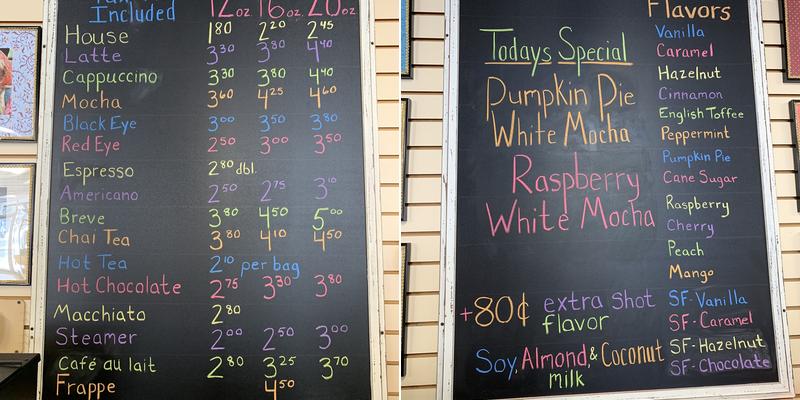 Included 12oz. 16oz. 20oz
House 1.80 2.20 2.45
Latte 3.30 3.80 4.40
Cappuccino 3.30 3.80 4.40
Mocha 3.60 4.25 4.60
Black Eye 3.00 3.50 3.80
Red Eye 2.50 3.00 3.50
Espresso 2.80 dbl.
Americano 2.50 2.75 3.10
Breve 3.80 4.50 5.00
Chai Tea 3.80 4.10 4.50
Hot Tea 2.10 per bag
Hot Chocolate 2.75 3.30 3.80
Macchiato 2.80
Steamer 2.00 2.50 3.00
Café au lait 2.80 3.25 3.70
Frappe 4.50
Todays Special
Pumpkin Pie
White Mocha
Raspberry
White Mocha
+80¢ extra shot
flavor
Soy, Almond, & Coconut
milk
Flavors
Vanilla
Caramel
Hazelnut
Cinnamon
English Toffee
Peppermint
Pumpkin Pie
Cane Sugar
Raspberry
Cherry
Peach
Mango
SF-Vanilla
SF-Caramel
SF-Hazelnut
SF-Chocolate